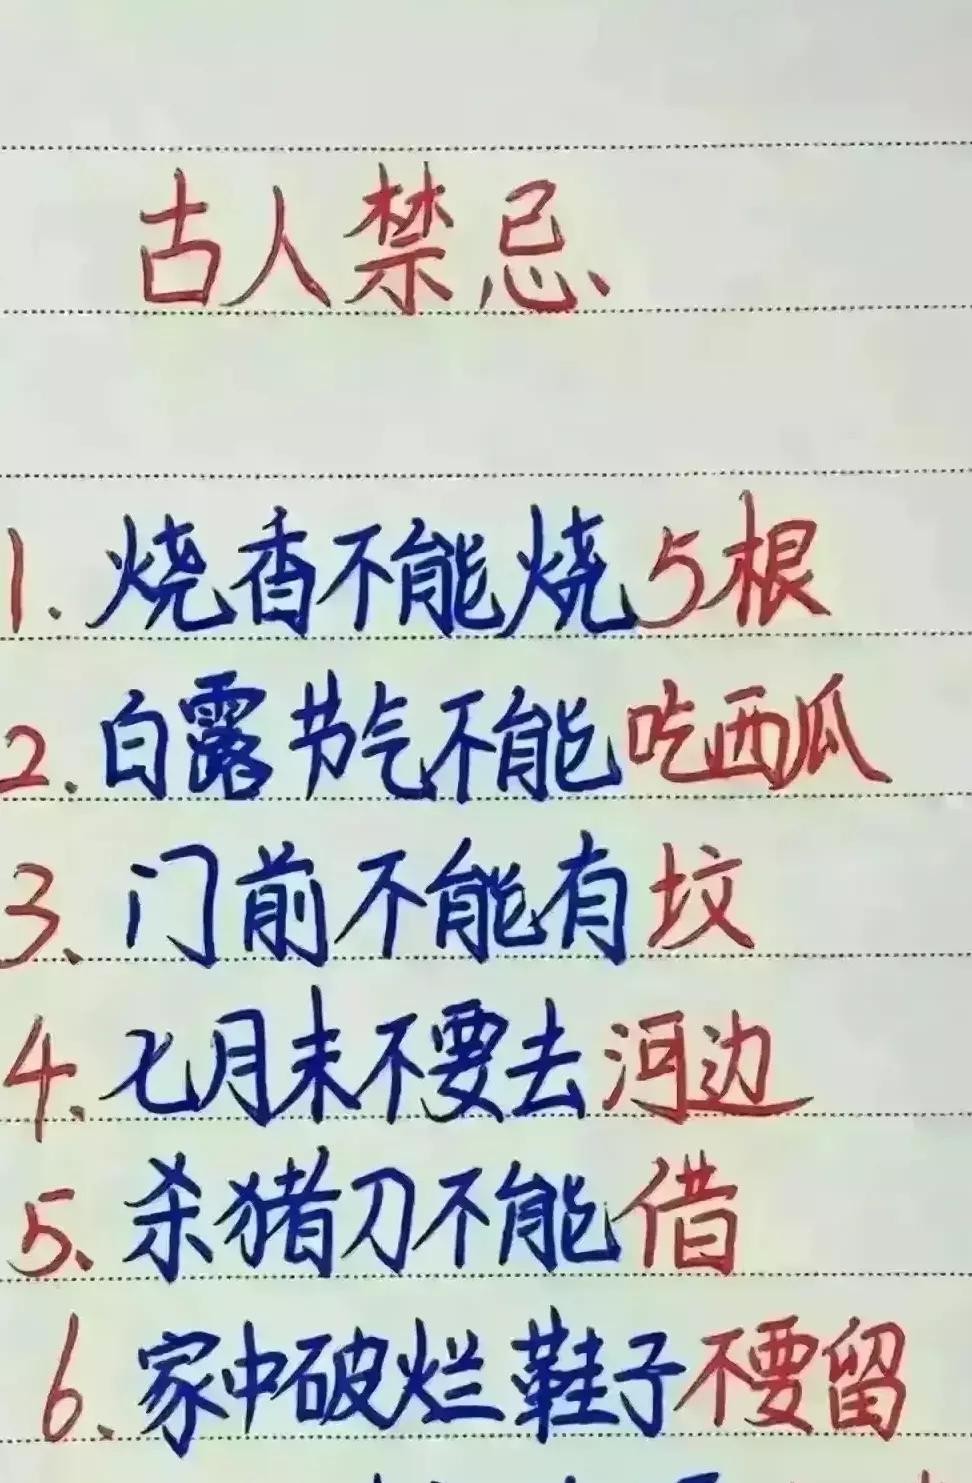 古人禁忌、
1. 烧香不能烧5根
2. 白露节气不能吃西瓜
3、门前不能有坟
4、七月末不要去河边
5、杀猪刀不能借
6、家中破烂鞋子不要留